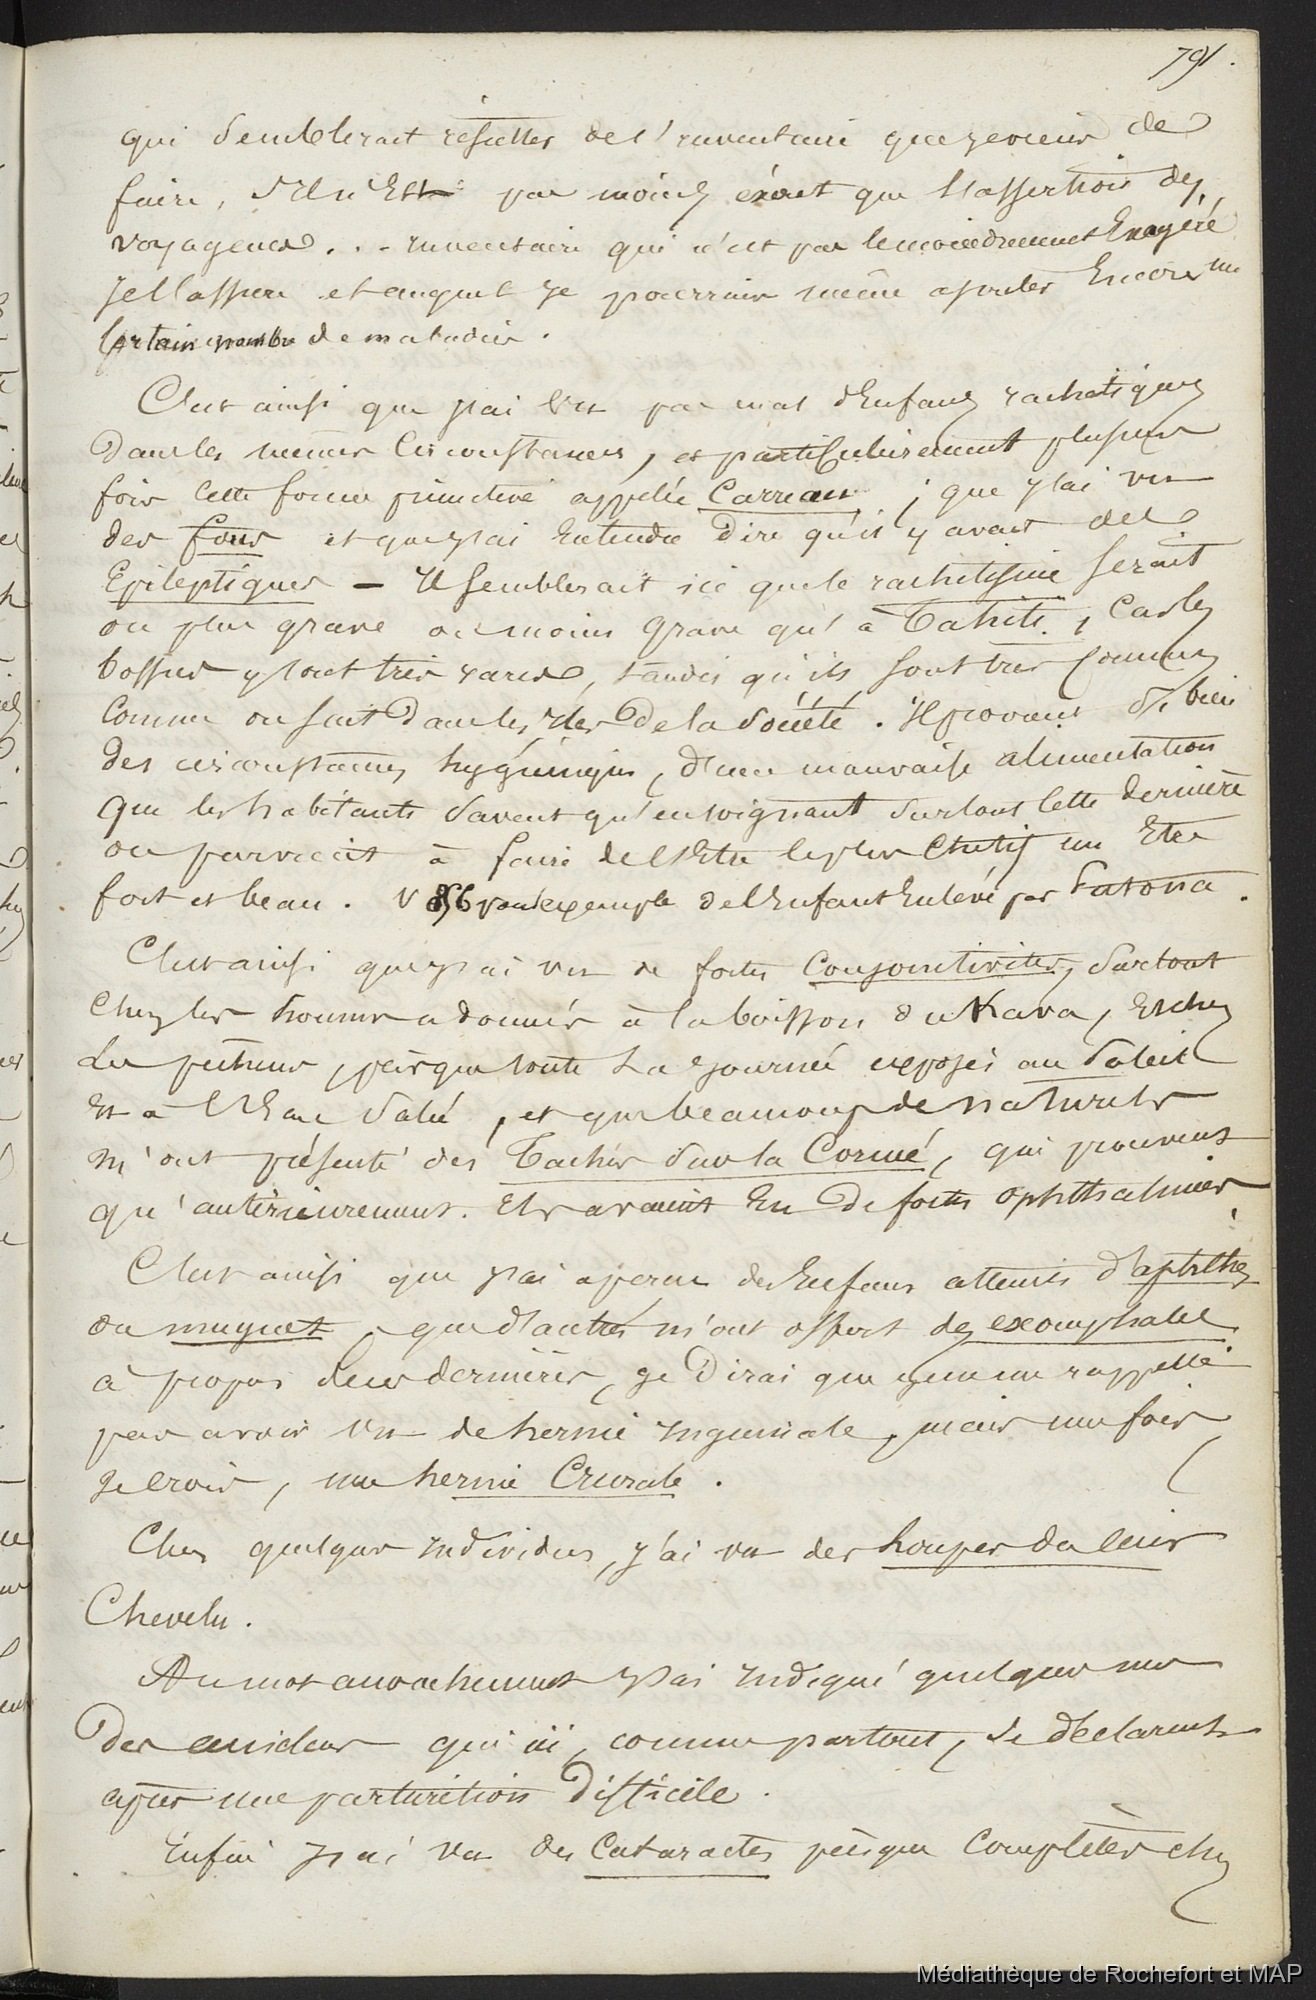 791.
qui semblerait résulter de l'inventaire que je viens de
faire, s'il n'est pas moins exact que l'assertion des
voyageurs... inventaire qui n'est pas le moindrement Exagéré
je l'assure et auquel je pourrais même ajouter Encore un
Certain nombre de maladies.
C'est ainsi que j'ai vu pas mal d'Enfans rachitiques
dans les mêmes Circonstances, et particulièrement plusieurs
fois cette forme primitive appelée Carreau ; que j'ai vu
des fous et que j'ai Entendu dire qu'il y avait des
Epileptiques — Il semblerait ici que le rachitisme serait
ou plus grave ou moins grave qu'à Tahiti, Car les
bossus y sont très rares, tandis qu'ils sont très communs
Comme on sait dans les Iles De la Société. Il provient si bien
des circonstances hygiéniques, d'une mauvaise alimentation
que les habitants savent qu'en soignant surtout cette dernière
on parvient à faire de l'Etre le plus Chétif un Etre
fort et beau. V 856 pour exemple de l'Enfant Enlevé par
C'est ainsi que j'ai vu de fortes Conjonctivites, surtout
Chez les hommes adonnés à la boisson du Kava, Et chez
les pêcheurs, presque toute La journée exposés au Soleil
Et à l'Eau Salée, et que beaucoup de naturels
m'ont présenté des Taches sur la Cornée, qui prouvent
qu'antérieurement Ils avaient Eu De fortes Ophthalmies.
C'est ainsi que j'ai aperçu des Enfans atteints d'aphthes
ou muguet, que d'autres m'ont offert des exomphales
à propos de ces dernières, je Dirai que je ne me rappelle
pas avoir vu de hernie Inguinale, mais une fois
je crois, une hernie Crurale.
Chez quelques individus, j'ai vu des loupes du cuir
Chevelu.
Au mot accouchement j'ai indiqué quelques uns
Des accidens qui ici, comme partout, se déclarent
après une parturition Difficile.
Enfin j'ai vu des Cataractes presque Complètes chez
Médiathèque de Rochefort et MAP